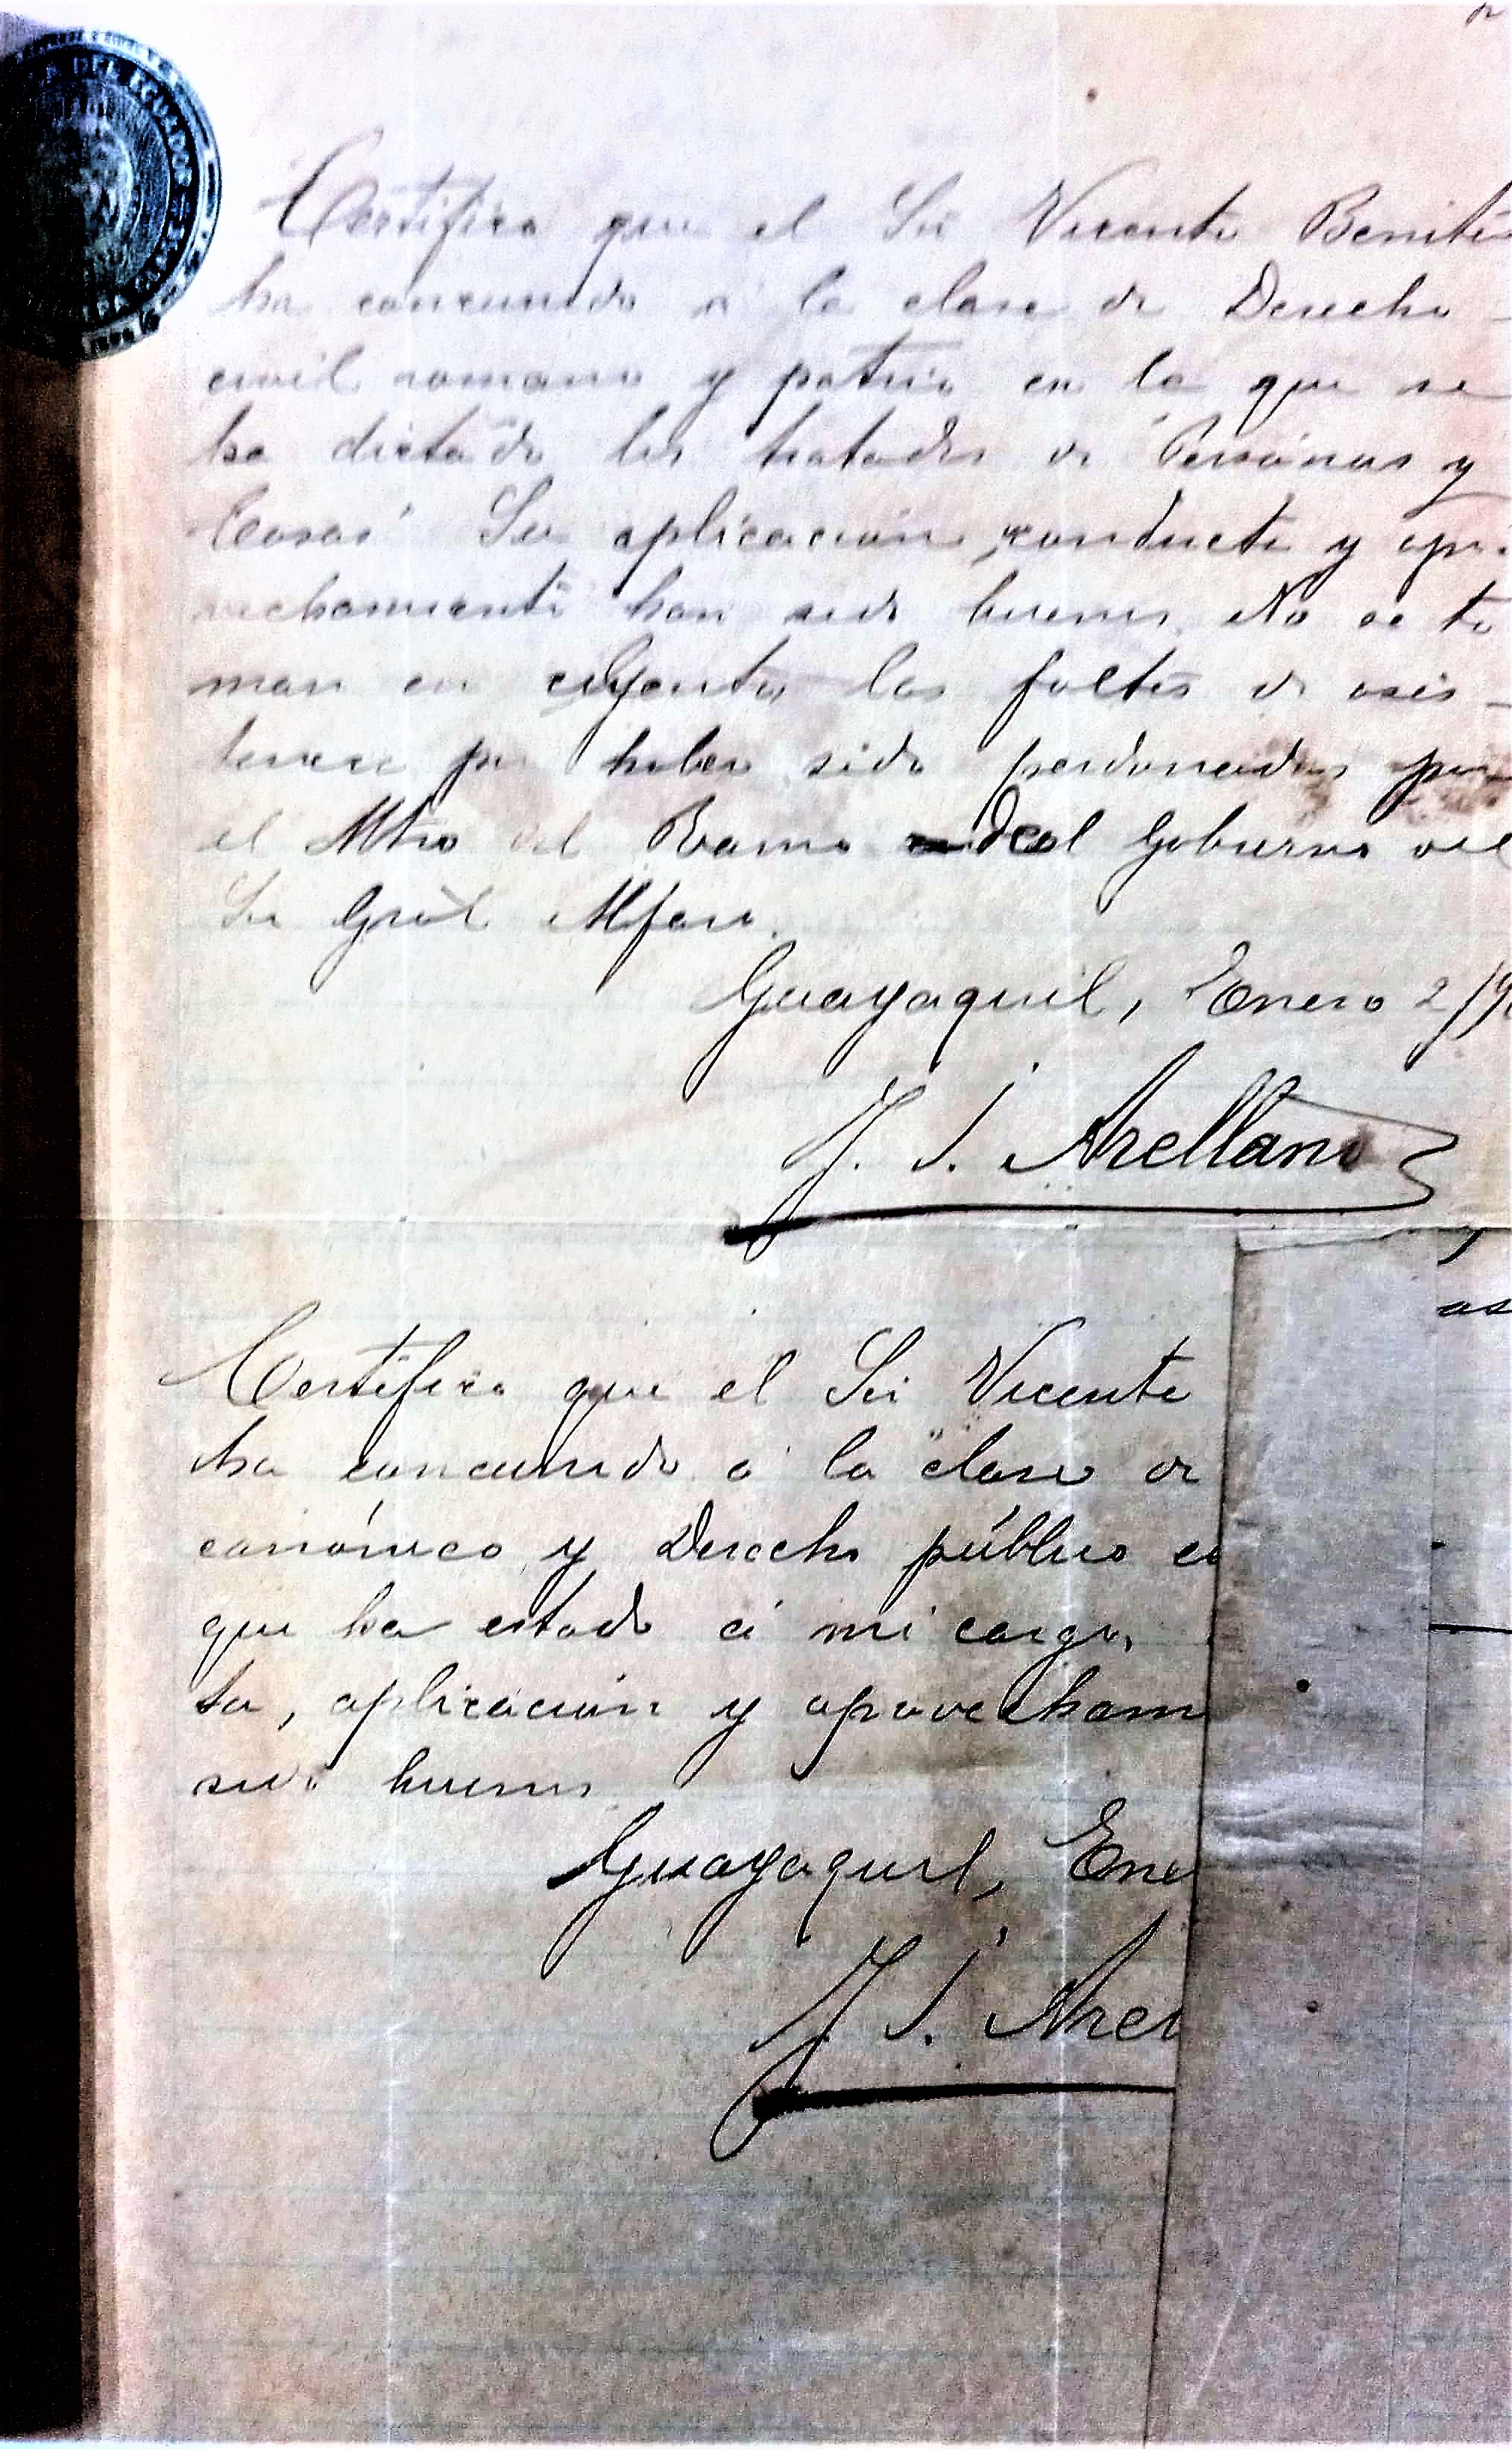 DEL ECUADOR
Certifico que el Sr Vicente Benite
ha concurrido a la clase de Derecho
civil romano y patrio en la que se
ha dictado los tratados de Personas y
Cosas. Su aplicacion, conducta y apro
vechamiento han sido buenos. No se to
man en cuenta las faltas de asis-
tencia por haber sido perdonadas por
el Mtro del Ramo del Gobierno del
Sr Gral Alfaro.
Guayaquil, Enero 2/9
J. J. Arellano
as
Certifico que el Sr Vicente
ha concurrido á la clase de
canónico y Derecho público e
que ha estado á mi cargo.
ta, aplicación y aprovecham
sido buenos
Guayaquil, Ene
J. J. Arel